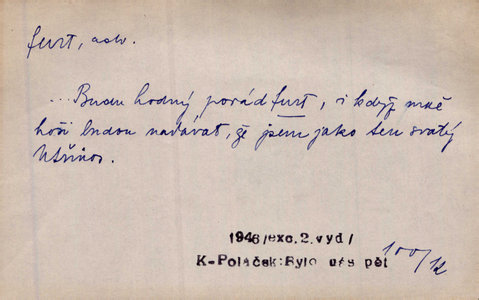 furt, adv.
...Budu hodný pořád furt, i když mně
hoši budou nadávat, že jsem jako ten svatý
Utřinos.
1946/exc.2.vyd/
K-Poláček:Bylo nás pět 100/12